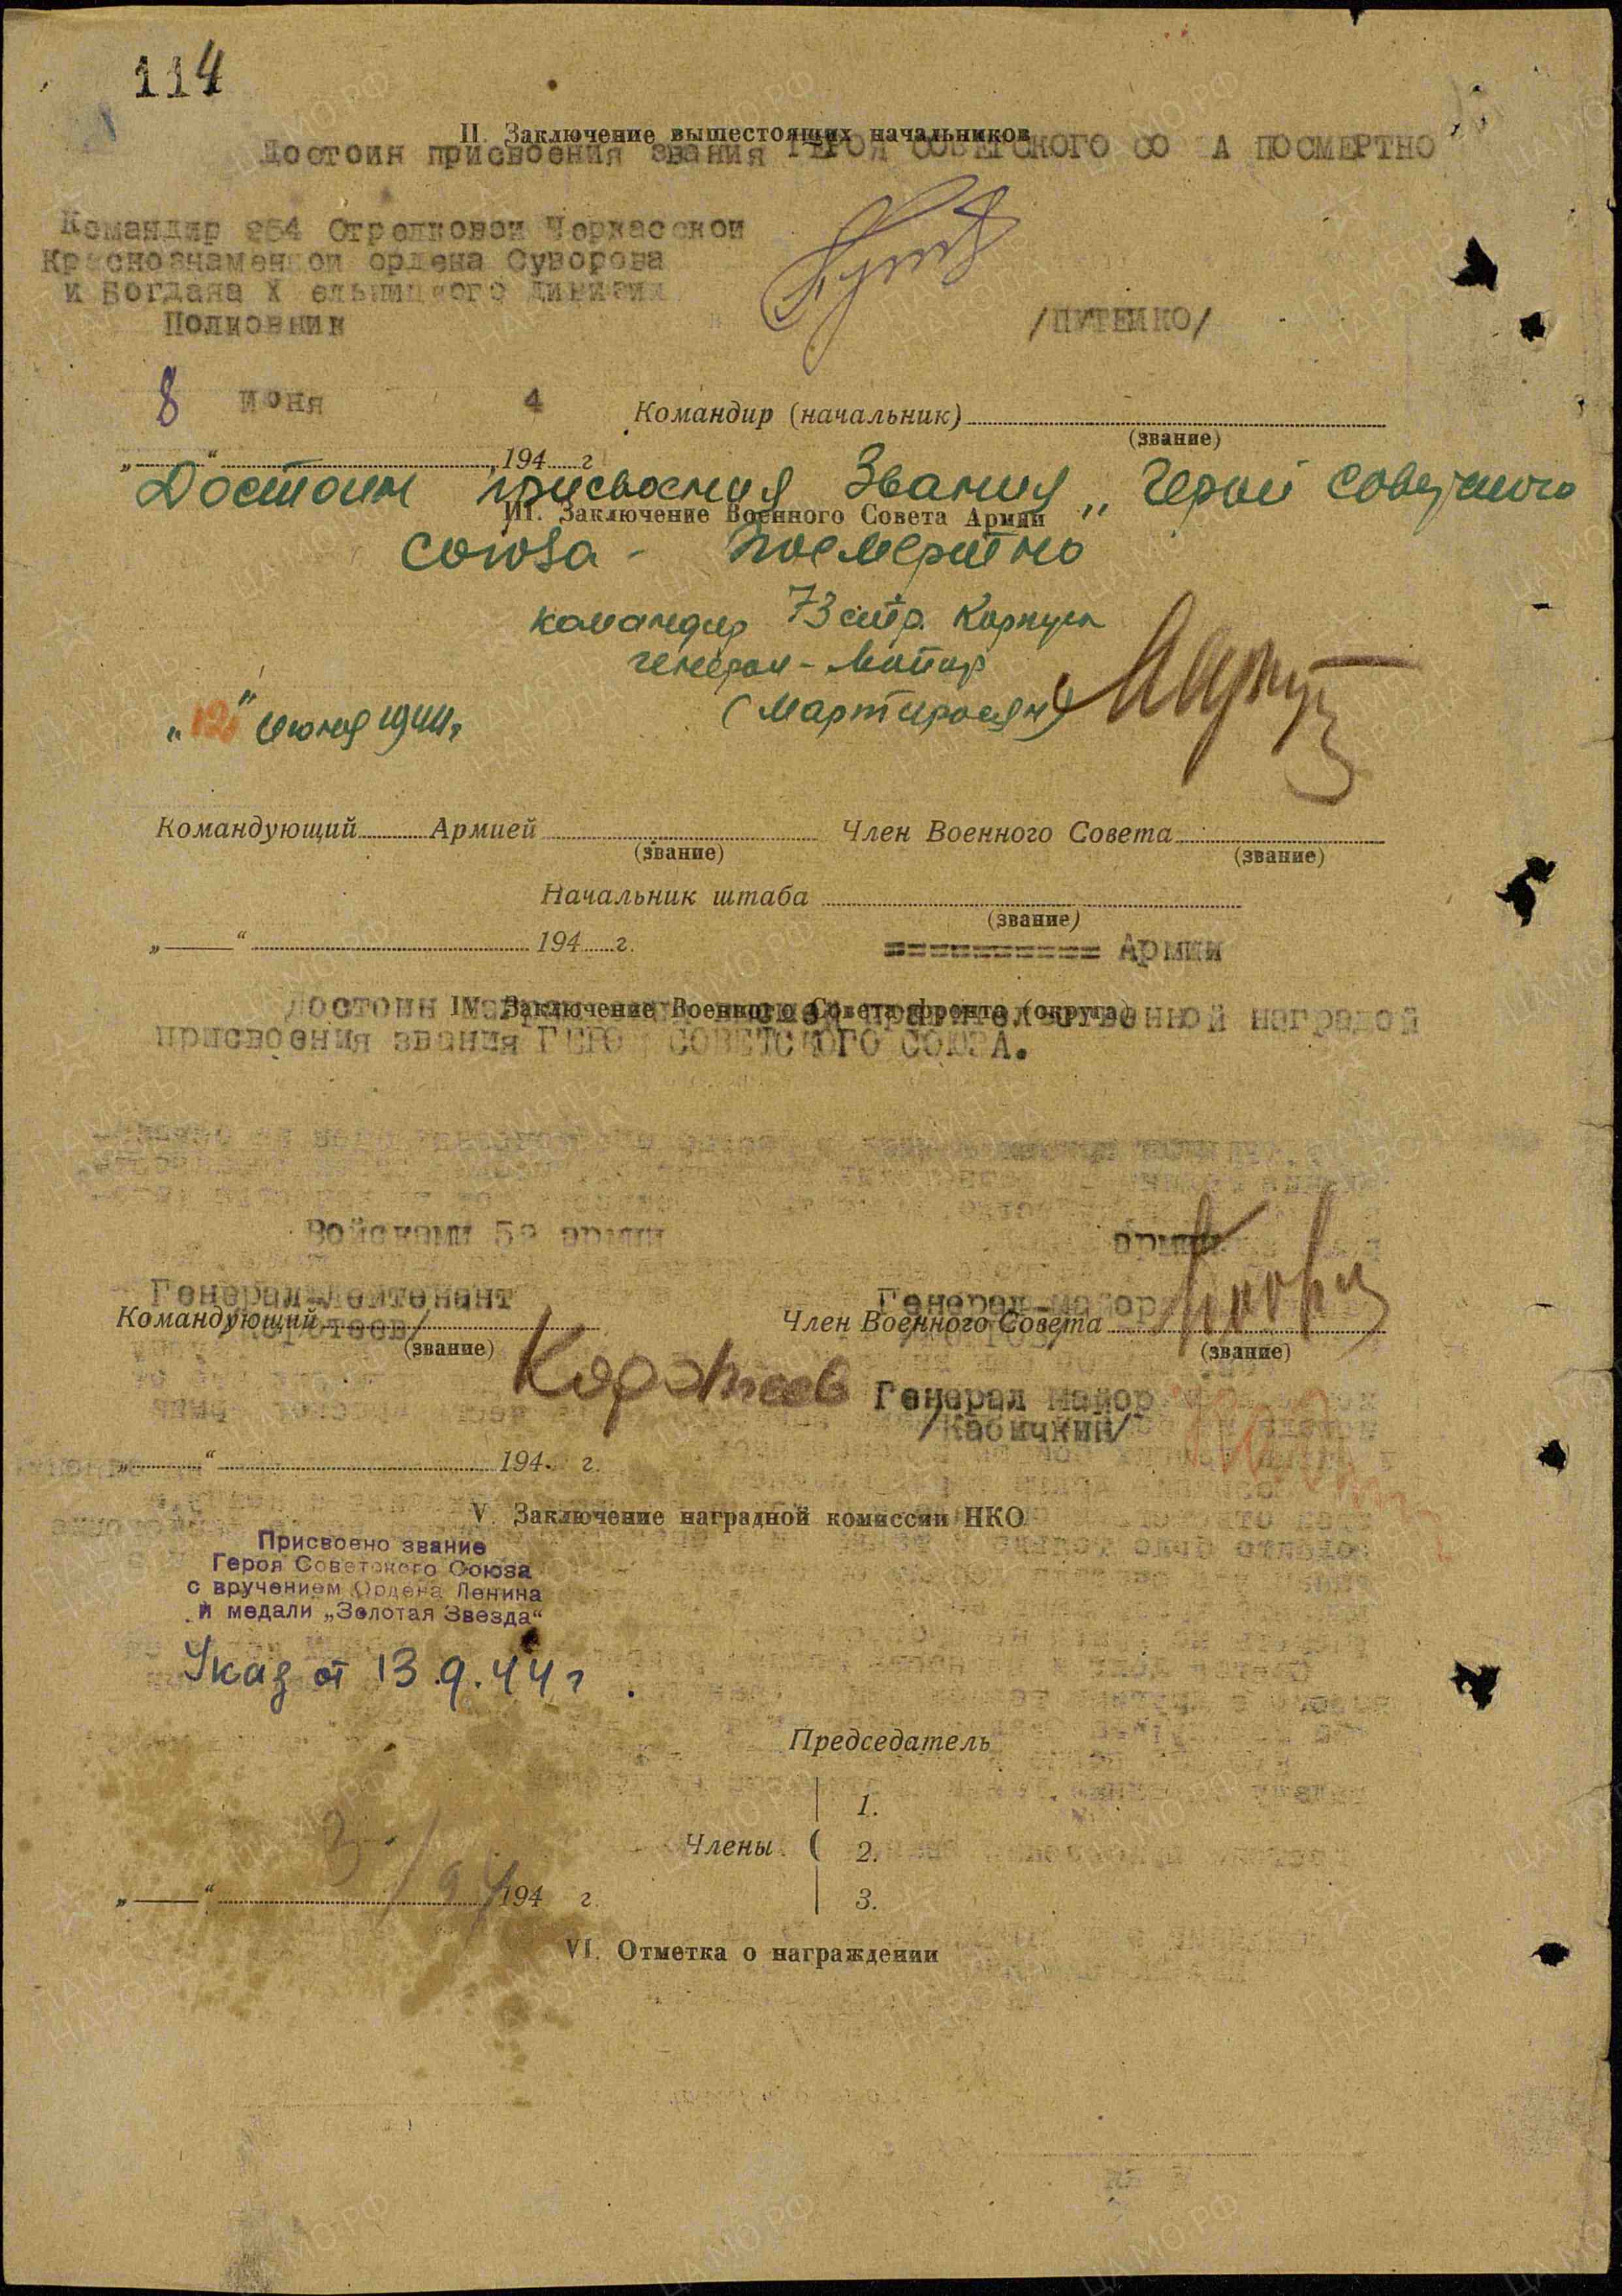 114
II. Заключение вышестоящих начальников
Достоин присвоения звания ГЕРОЯ СОВЕТСКОГО СО А ПОСМЕРТНО
Командир 254 Стрелковой Черкасской
Краснознаменной ордена Суворова
и Богдана Х ельницкого дивизии
Полковник
/ПУТЕЙКО/
8 июня 4
Командир (начальник)
(звание)
„ “ 194 г
Достоин присвоения Звания „Герой Советского
III. Заключение Военного Совета Армии
Союза - Посмертно
командир 73 стр. Корпуса
генерал-майор
(Мартиросян)
„12" июня 1944г.
Командующий Армией
Член Военного Совета
(звание)
(звание)
Начальник штаба
(звание)
„ “ 194 г.
========== Армии
IV. Заключение Военного Совета фронта (округа)
Достоин правительственной наградой
присвоения звания ГЕРО СОВЕТСКОГО СОЮЗА.
Войсками 52 армии
армии
Генерал-лейтенант
Генерал-майор
Командующий
Член Военного Совета
/Коротеев/
(звание)
(звание)
Коротеев
Генерал майор
/Кабичкин/
„ “ 194 г.
V. Заключение наградной комиссии НКО
Присвоено звание
Героя Советского Союза
с вручением Ордена Ленина
и медали „Золотая Звезда“
Указ от 13.9.44г.
Председатель
1.
Члены 2.
3.
„ “ 194 г.
VI. Отметка о награждении